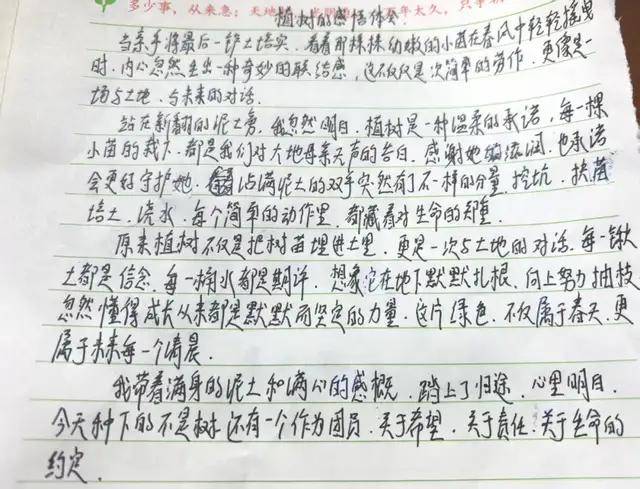 多少事，从来急；天地
植树的感悟体会！
当亲手将最后一铲土培实，看着那棵棵幼嫩的小苗在春风中轻轻摇曳
时，内心忽然生出一种奇妙的联结感，这不仅仅是次简单的劳作，更像是一
场与土地、与未来的对话。
站在新翻的泥土旁，我忽然明白，植树是一种温柔的承诺，每一棵
小苗的栽下，都是我们对大地母亲无声的告白，感谢她的滋润，也承诺
会更好守护她。沾满泥土的双手突然有了不一样的分量，挖坑、扶苗
培土、浇水，每个简单的动作里，都藏着对生命的郑重
原来植树不仅是把树苗埋进土里，更是一次与土地的对话，每一锹
土都是信念，每一桶水都是期许，想象它在地下默默扎根，向上努力抽枝
忽然懂得成长从来都是默默而坚定的力量，这片绿色，不仅属于春天，更
属于未来每一个清晨。
我带着满身的泥土和满心的感概，踏上了归途，心里明白，
今天种下的不是树，还有一个作为团员，关于希望，关于责任，关于生命的
约定。